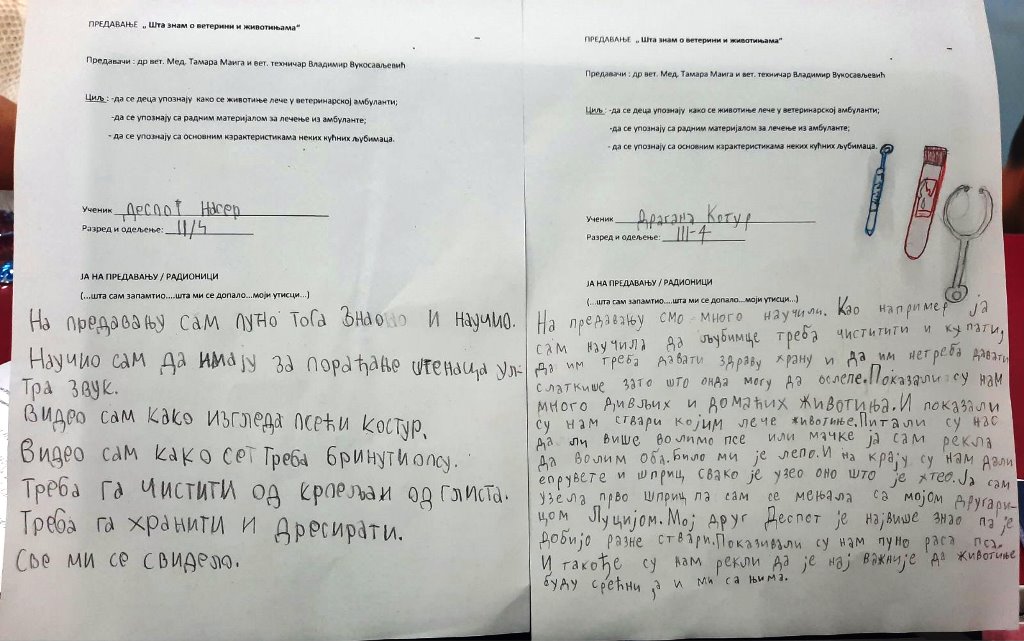 ПРЕДАВАЊЕ „ Шта знам о ветерини и животињама“
Предавачи : др вет. Мед. Тамара Маига и вет. техничар Владимир Вукосављевић
Циљ : -да се деца упознају како се животиње лече у ветеринарској амбуланти;
-да се упознају са радним материјалом за лечење из амбуланте;
- да се упознају са основним карактеристикама неких кућних љубимаца.
Ученик Деспот Насер
Разред и одељење: III/4
ЈА НА ПРЕДАВАЊУ / РАДИОНИЦИ
(...шта сам запамтио....шта ми се допало...моји утисци...)
На предавању сам пуно тога знао и научио.
Научио сам да имају за порађање штенаца ул-
тра звук.
Видео сам како изгледа псећи костур.
Видео сам како сет треба бринути о псу.
Треба га чистити од крпеља и од глиста.
Треба га хранити и дресирати.
Све ми се свидело.
ПРЕДАВАЊЕ „ Шта знам о ветерини и животињама“
Предавачи : др вет. Мед. Тамара Маига и вет. техничар Владимир Вукосављевић
Циљ : -да се деца упознају како се животиње лече у ветеринарској амбуланти;
-да се упознају са радним материјалом за лечење из амбуланте;
- да се упознају са основним карактеристикама неких кућних љубимаца.
Ученик Драгана Котур
Разред и одељење: III-4
ЈА НА ПРЕДАВАЊУ / РАДИОНИЦИ
(...шта сам запамтио....шта ми се допало...моји утисци...)
На предавању смо много научили. Као например ја
сам научила да љубимце треба чиститити и купати,
да им треба давати здраву храну и да им нетреба давати
слаткише зато што онда могу да ослепе. Показали су нам
много дивљих и домаћих животиња. И показали
су нам ствари којим лече животиње. Питали су нас
да ли више волимо псе или мачке ја сам рекла
да волим оба. Било ми је лепо. И на крају су нам дали
епрувете и шприц свако је узео оно што је хтео. Ја сам
узела прво шприц па сам се мењала са мојом другари-
цом Луцијом. Мој друг Деспот је највише знао па је
добијо разне ствари. Показивали су нам пуно раса пса.
И такође су нам рекли да је нај важније да животиње
буду срећни, а и ми са њима.